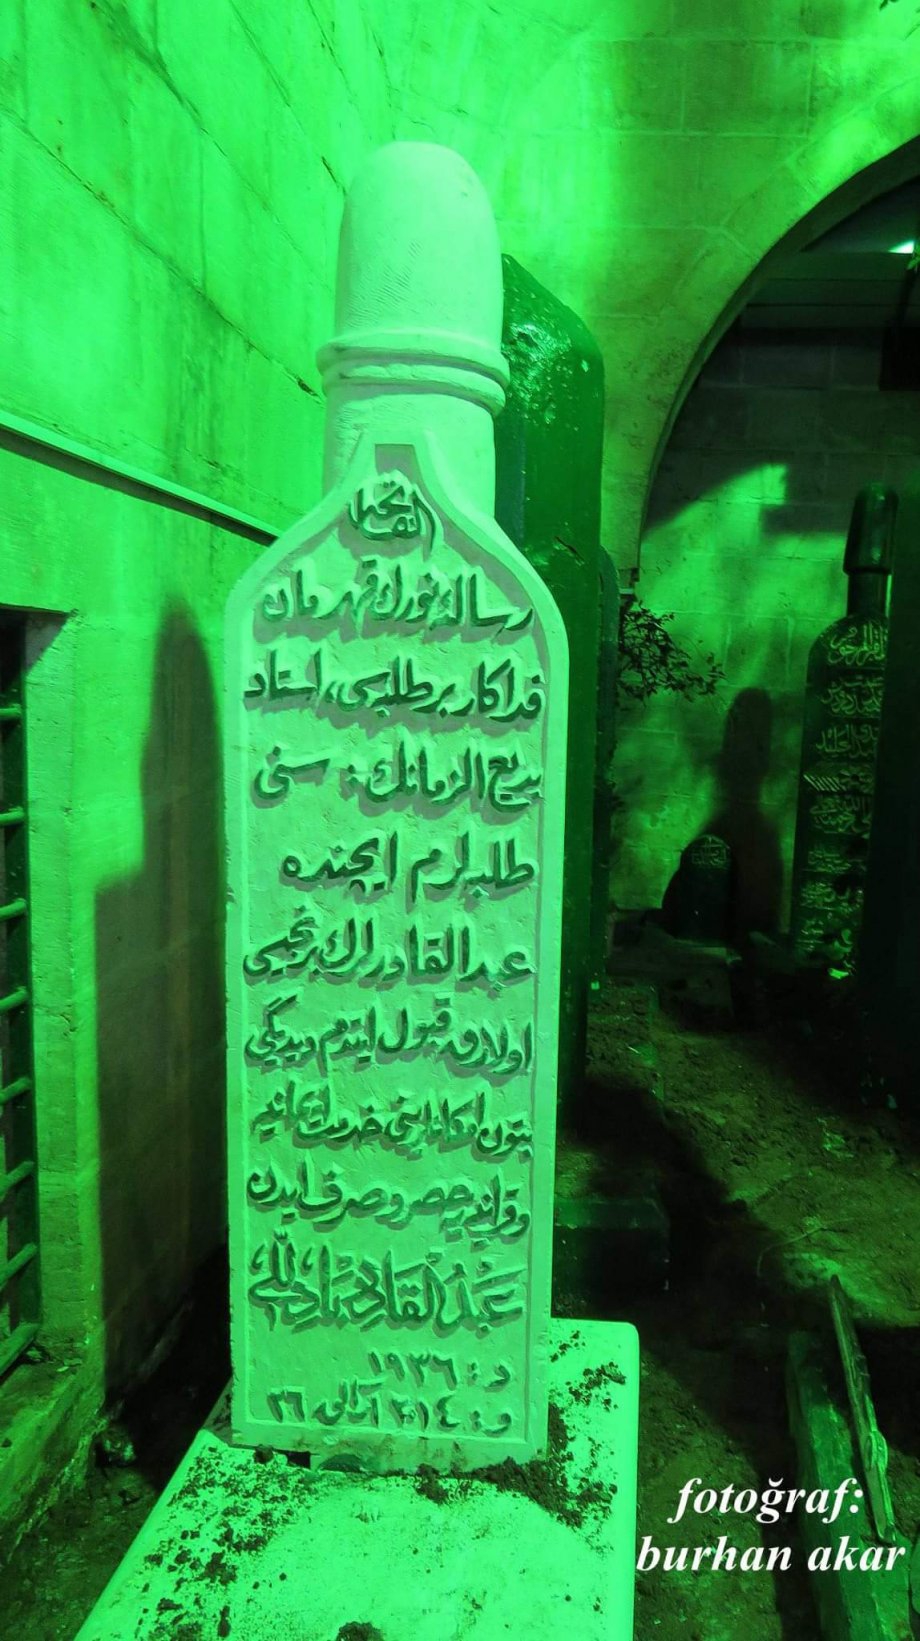 الفاتحه
رساله نورك قهرمان
فداكار بر طلبه‌سى، استاد
بديع الزمانك: سنى
طلبه‌لرم ايچنده
عبد القادرلرك برنجيسى
اولارق قبول ايتدم ديديگى
بتون امكانلرينى خدمت ايمانيه
و قرآنيه‌يه حصر و صرف ايدن
عَبْدُ الْقَادِرْ بَادِللى
د: ١٩٣٦
و: ٢٠١٤ آرالق ٢٦
fotoğraf:
burhan akar